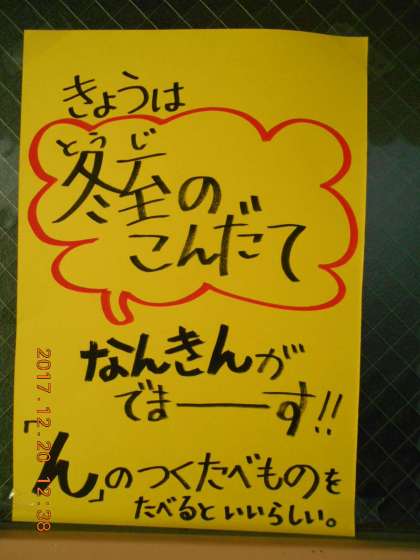 きょうは
とうじ
冬至の
こんだて
なんきんが
でまーーす!!
「ん」のつくたべものを
たべるといいらしい。
2017.12.20 12:38